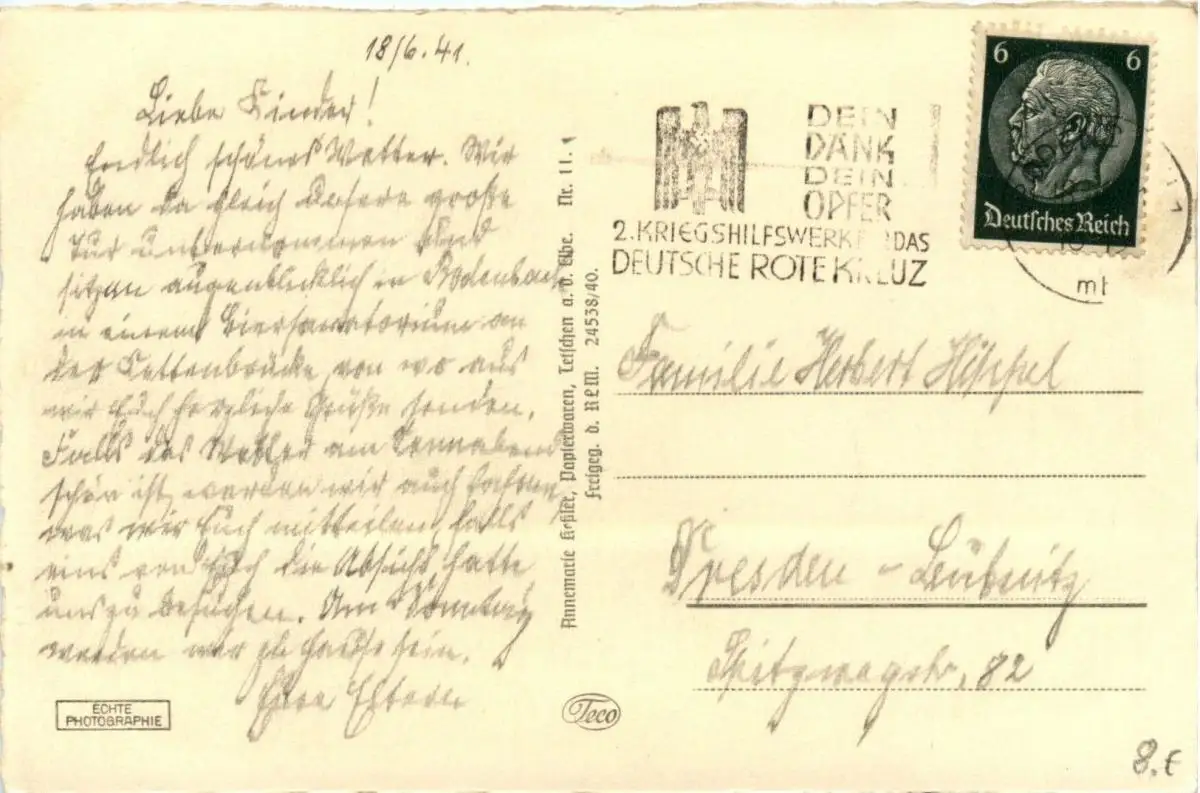 18/6.41.
Liebe Kinder!
Endlich schönes Wetter. Wir
haben da gleich große
Tur unternommen und
sitzen augenblicklich in Bodenbach
in einem Biersanatorium an
der Kettenbrücke, von wo aus
wir Euch herzliche Grüße senden.
Falls das Wetter am Sonnabend
schön ist, werden wir auch fahren
was wir Euch mitteilen, falls
eins von Euch die Absicht hatte
uns zu besuchen. Am Sonntag
werden wir zu Hause sein.
Eure Eltern
ECHTE
PHOTOGRAPHIE
Annemarie Keßler, Papierwaren, Tetschen a. d. Elbe. Nr. 11.
Freigeg. d. RLM. 24538/40.
Teco
DEIN
DANK
DEIN
OPFER
2. KRIEGSHILFSWERK DAS
DEUTSCHE ROTE KREUZ
6 6
Deutsches Reich
Familie Herbert Hippel
Dresden - Leubnitz
Spitzwegstr. 82
8.€